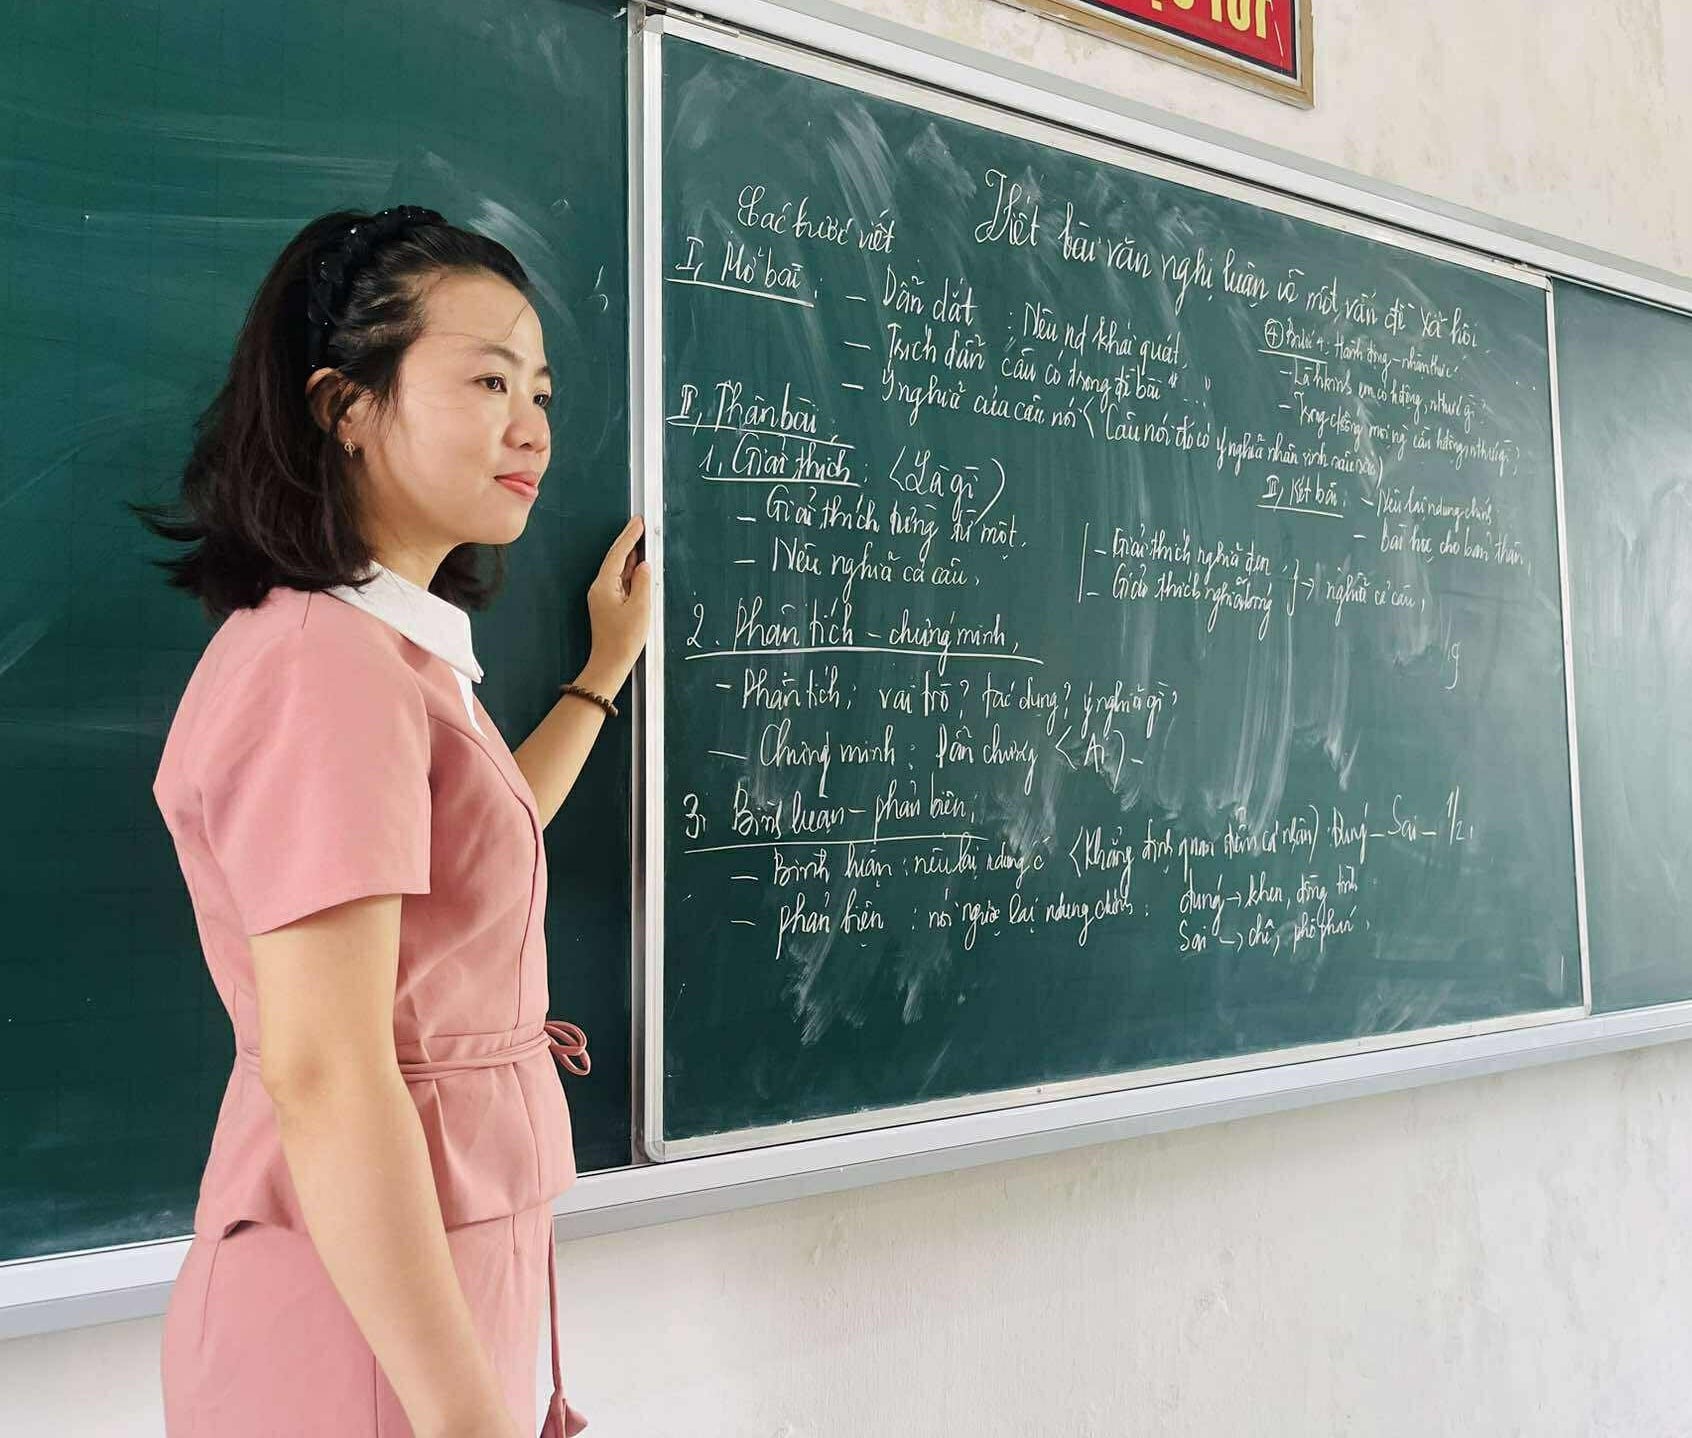 TỐT
Viết bài văn nghị luận về một vấn đề xã hội.
Các bước viết
I, Mở bài: - Dẫn dắt : Nêu nd khái quát.
- Trích dẫn câu có trong đề bài " "
- Ý nghĩa của câu nói (Câu nói đó có ý nghĩa nhân sinh sâu sắc)
II, Thân bài:
1, Giải thích: (Là gì)
- Giải thích từng từ một.
- Nêu nghĩa cả câu,
- Giải thích nghĩa đen
- Giải thích nghĩa bóng } → nghĩa cả câu,
2. Phân tích - chứng minh,
- Phân tích: vai trò? tác dụng? ý nghĩa gì?
- Chứng minh: Dẫn chứng (Ai) -
3, Bình luận - phản biện,
- Bình luận: nêu lại ndung c (Khẳng định quan điểm cá nhân) Đúng - Sai - 1/2,
- phản biện : nói ngược lại ndung chính: đúng → khen, đồng tình
Sai → chê, phê phán,
④ Bước 4: Hành động - nhận thức:
- Là hsinh em có hđộng, nthức gì?
- Trong cộng mọi ng cần hđộng nthức gì?
III, Kết bài: - Nêu lại ndung chính
- Bài học cho bản thân,